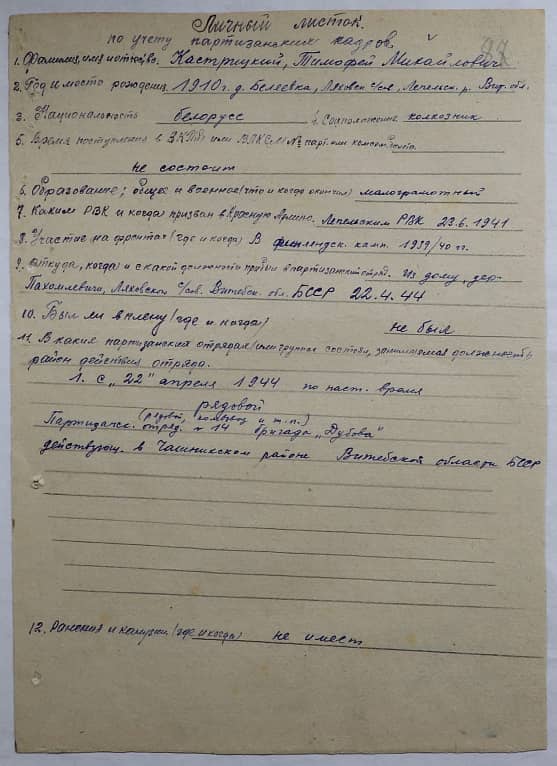 Личный листок
по учету партизанских кадров.
1. Фамилия, имя и отчество. Кастрицкий, Тимофей Михайлович.
2. Год и место рождения. 1910 г. д. Белеевка, Ляховск. с/сов., Лепельск. р. Вит. обл.
3. Национальность белорусс 4. Соцположение колхозник
5. Время поступления в ВКПб или ВЛКСМ и № парт. или комс.
не состоит
6. Образование; общее и военное (что и когда окончил) малограмотный
7. Каким РВК и когда призван в Красную Армию. Лепельским РВК 23.6.1941
8. Участие на фронтах (где и когда) В финляндск. камп. 1939/40 гг.
9. Откуда, когда и с какой должности прибыл в партизанский Из дому, дер.
Пахомлевичи, Ляховского с/сов. Витебск. обл. БССР 22.4.44
10. Был ли в плену (где и когда) не был
11. В каких партизанских отрядах (или группах состоял, занимаемая должность
район действия отряда.
1. С „22" апреля 1944 по наст. время
рядовой
(рядовой, комвзвод и т.п.)
Партизанск. отряд. № 14 бригада „Дубова"
действующ. в Чашникском районе Витебской области БССР
12. Ранения и контузии (где и когда) не имеет